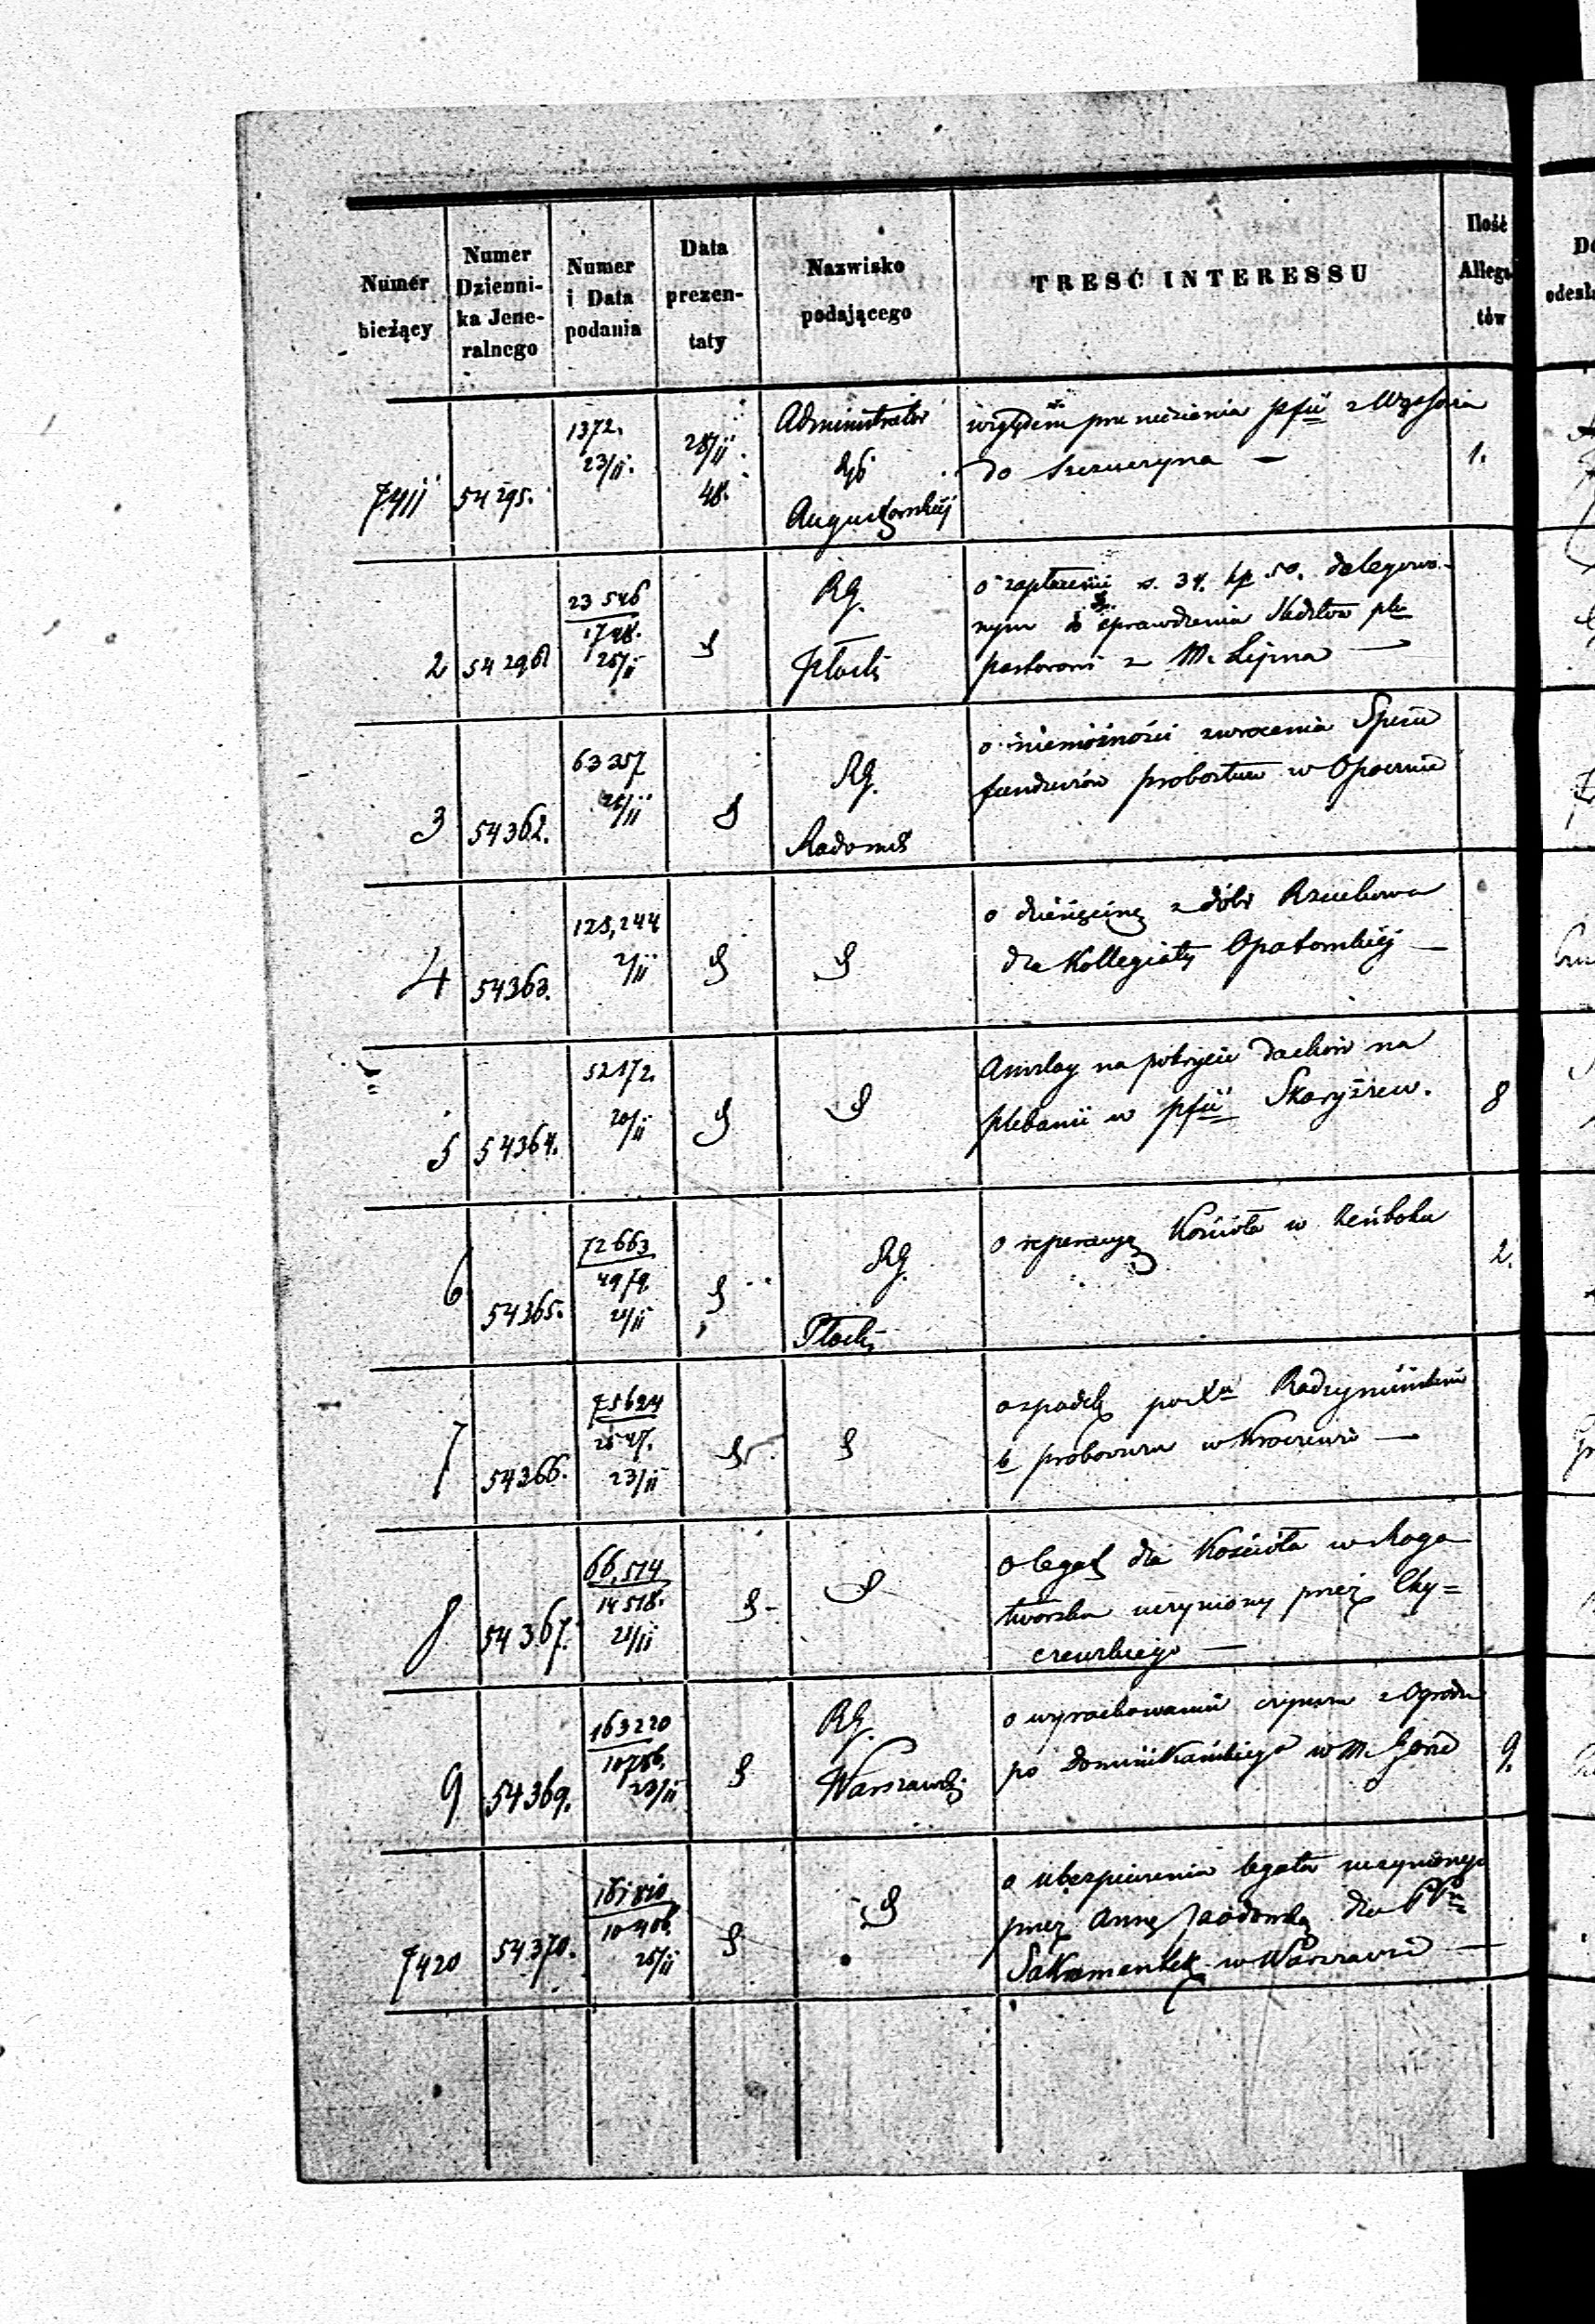 Numer bieżący
Numer Dzienni- ka Jene- ralnego
Numer i Data podania
Data prezen- taty
Nazwisko podającego
TREŚĆ INTERESSU
Ilość Allega tów
7411 54295. 1372. 23/11. 28/11. 48. Administrator Augustowskiej
względem przeniesienia pfii z
do Szczuczyna — 1.
2 54296 23546 1798. 25/11 RG. Płocki
o zapłacenie s. 34. kp 50. delegowa-
nym do sprawdzenia
z M. Lipna —
3 54362. 63357 RG. Radomsk
o niemożności zwrócenia Spisu
funduszów probostwa w Opocznie
4 54363. 125,244 2/11
o dziesięcinę z dóbr Rzuchowa
dla Kollegiaty Opatowskiej —
5 54364. 52172. 20/11
Anszlag na pokrycie dachów na
plebanii w pfii Skaryszew. 8
6 54365. 72663 4979. 21/11 RG. Płocki
o reperacyą Kościoła w 2.
7 54366. 75624 23/11
o spadek po Xu Radzymińskim
b proboszczu w Kroczewie —
8 54367. 66,514 14518. 21/11
o legat dla Kościoła w Roga
tworsku uczyniony przez Chy=
czewskiego —
9 54369. 163220 10786. 23/11 RG. Warszawski
o wyrachowanie czynszu z Ogrodu
po Dominikańskiego w M. Górze 9.
7420 54370. 10406. 25/11
o ubezpieczenie legatu uczynionego
przez Annę dla PPn
Sakramentek w Warszawie —